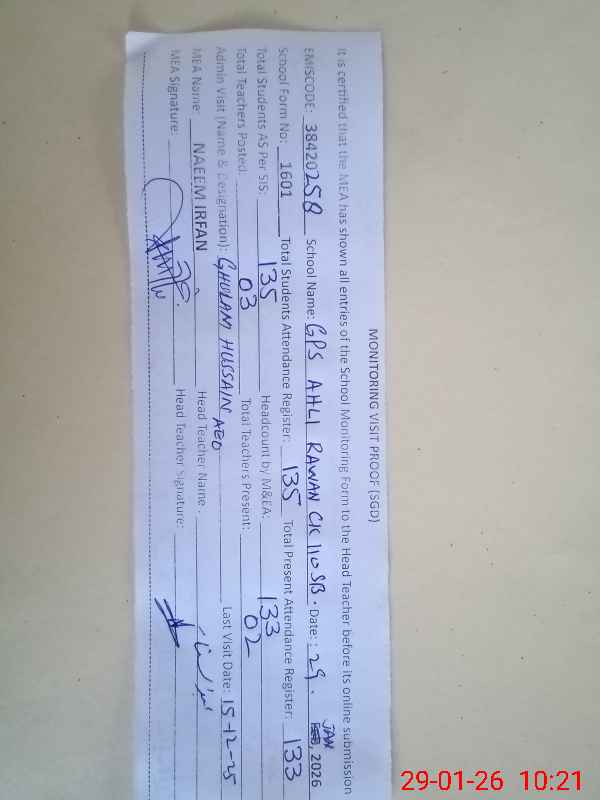 MONITORING VISIT PROOF (SGD)
It is certified that the MEA has shown all entries of the School Monitoring Form to the Head Teacher before its online submission
EMISCODE: 38420258 School Name: GPS AHLI RAWAN CK 110 SB. Date: : 29. JAN, 2026
School Form No: 1601 Total Students Attendance Register: 135 Total Present Attendance Register: 133
Total Students AS Per SIS: 135 Headcount by M&EA: 133
Total Teachers Posted: 03 Total Teachers Present: 02
Admin Visit (Name & Designation): GHULAM HUSSAIN AEO Last Visit Date: 15-12-25
MEA Name: NAEEM IRFAN Head Teacher Name.
MEA Signature: Head Teacher Signature:
29-01-26 10:21